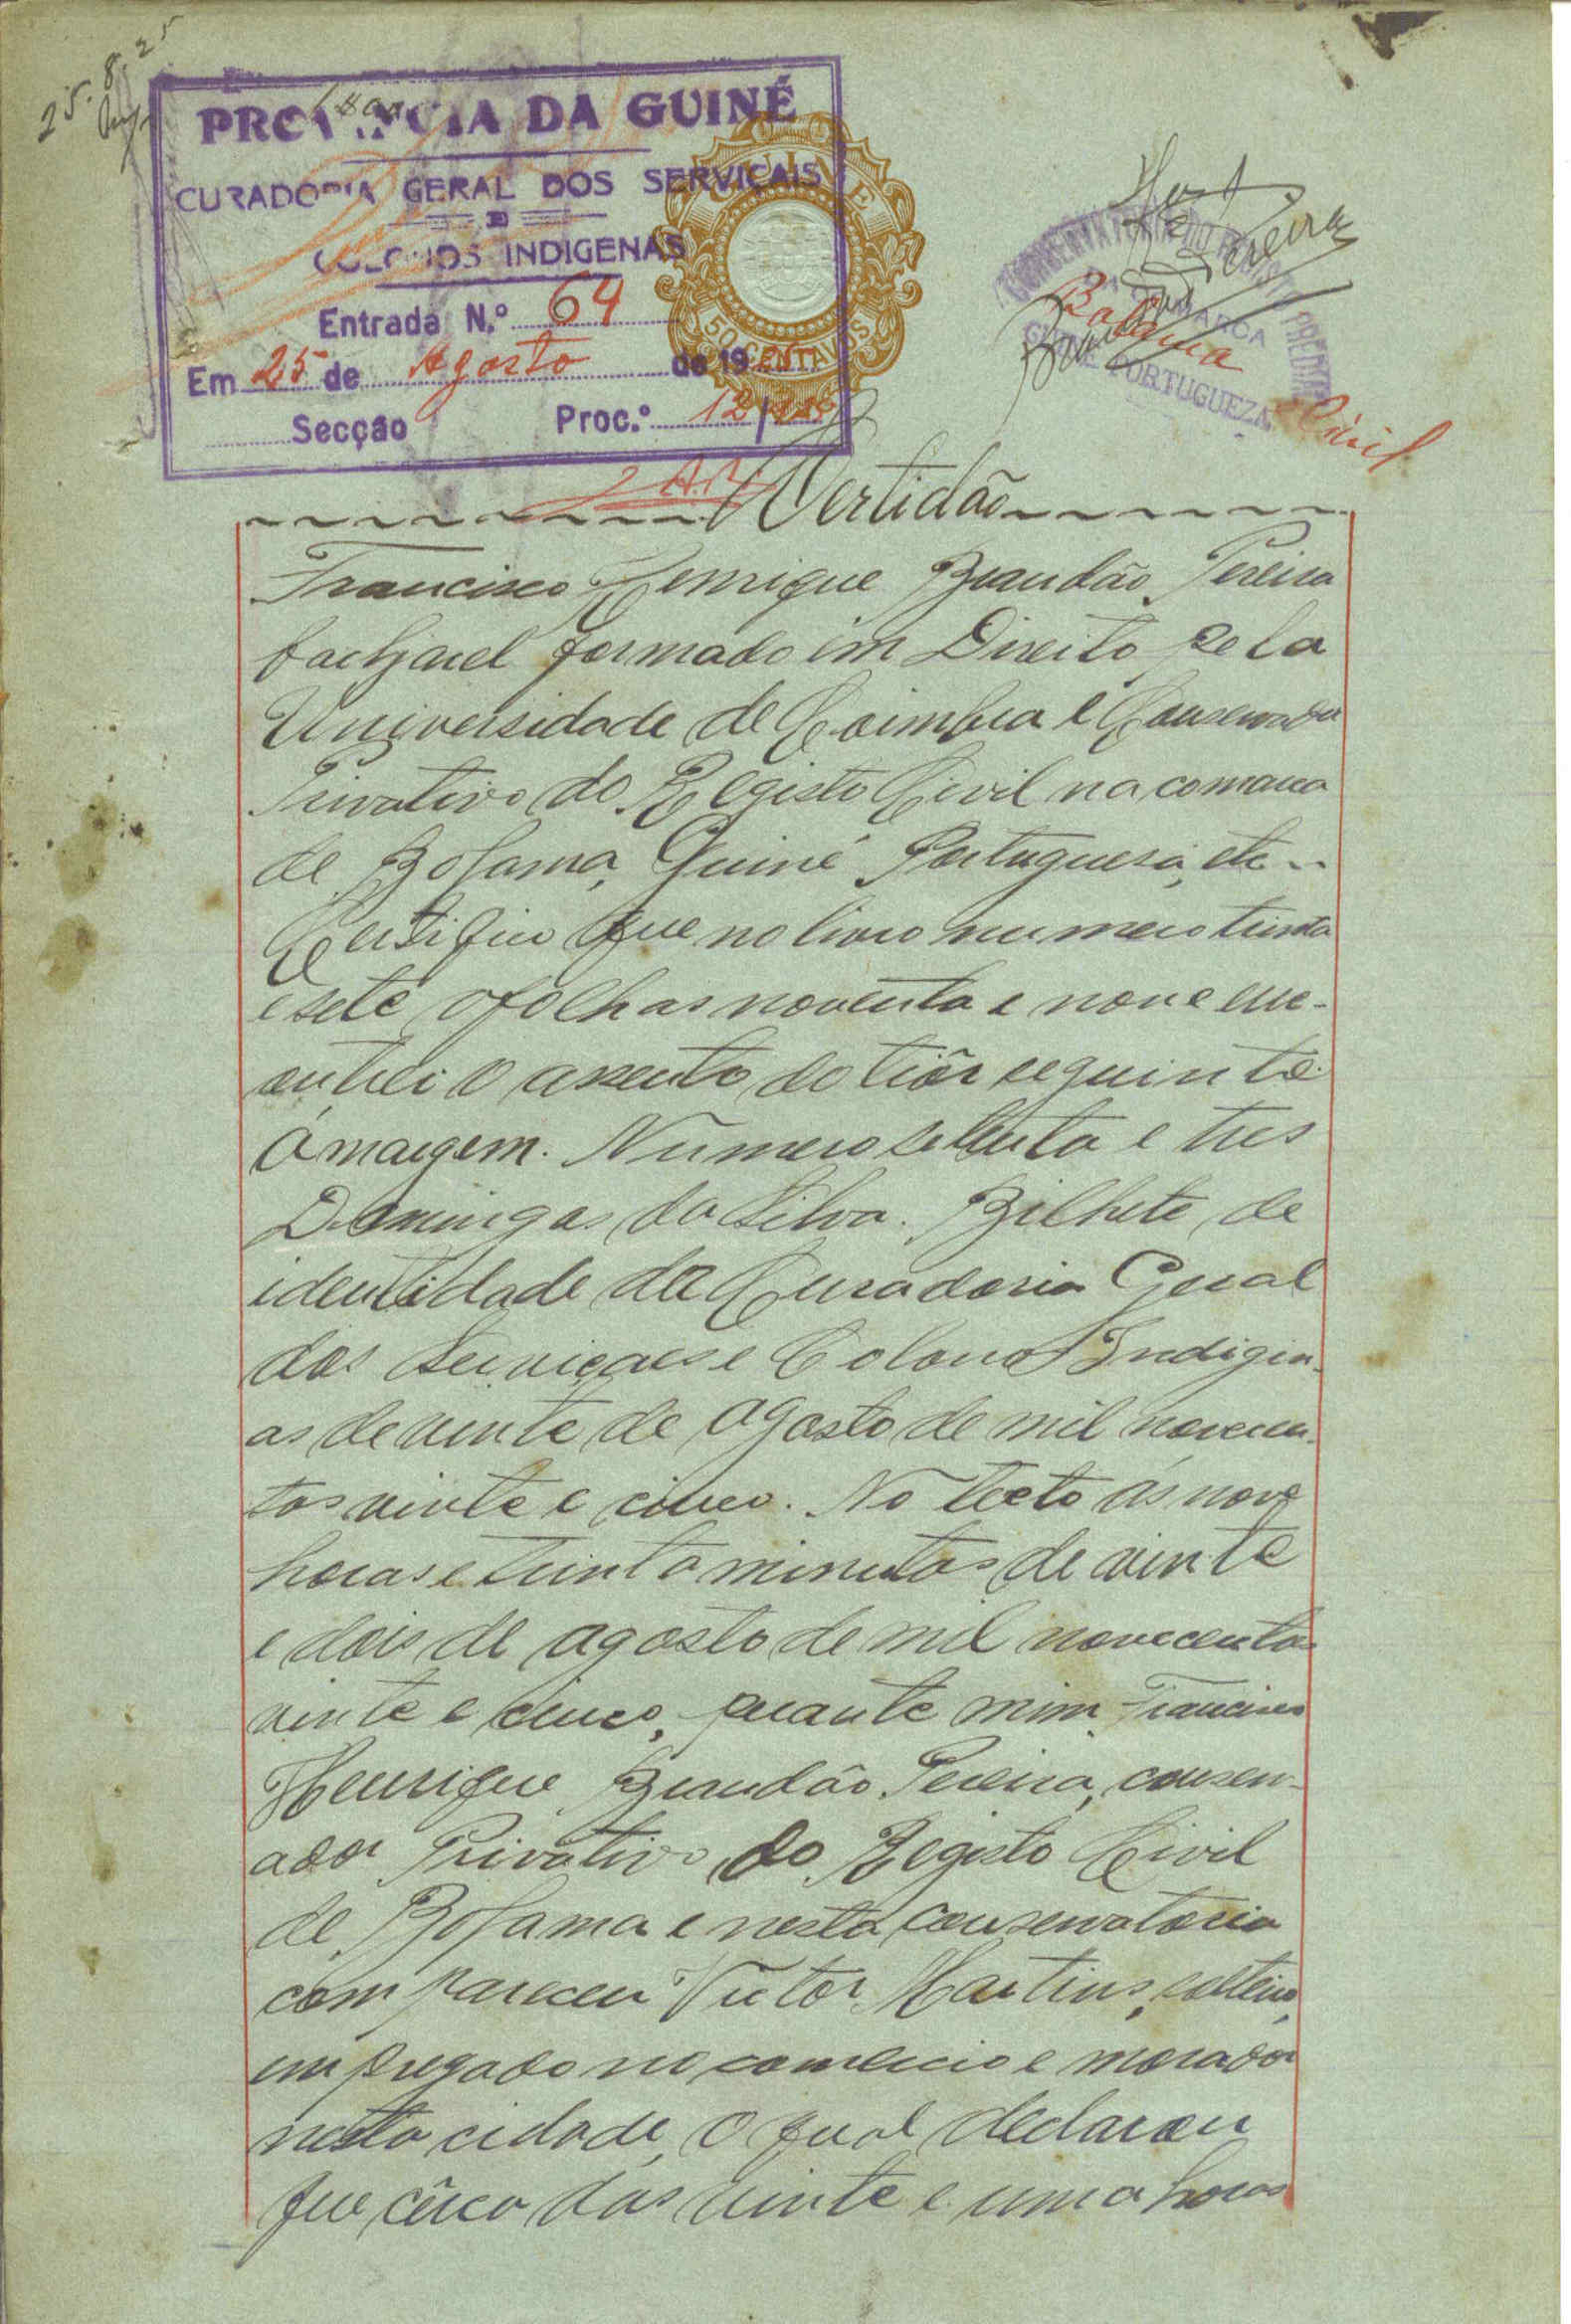 25.8.25
PROVINCIA DA GUINÉ
CURADORIA GERAL DOS SERVIÇAIS
E
COLONOS INDIGENAS
Entrada N.º 64
Em 25 de Agosto de 1925
Secção Proc.º 12/
GUINÉ
50 CENTAVOS
CONSERVATORIA DO REGISTO PREDIAL
COMARCA
Bolama
GUINÉ PORTUGUEZA
Civil
Certidão
Francisco Henrique Brandão Pereira
bacharel formado em Direito pela
Universidade de Coimbra e Conservador
Privativo do Registo Civil na comarca
de Bolama, Guiné Portuguesa, etc..
Certifico que no livro numero trinta
e sete a folhas noventa e nove enc-
ontrei o assento do tiôr seguinte.
Á margem. Numero setenta e tres
Domingas da Silva. Bilhete de
identidade da Curadoria Geral
dos Serviçaes e Colonos Indigin-
as de vinte de agosto de mil novecen-
tos vinte e cinco. No texto ás nove
horas e trinta minutos de vinte
e dois de agosto de mil novecentos
vinte e cinco, perante mim Francisco
Henrique Brandão Pereira, conserv-
ador Privativo do Registo Civil
de Bolama e nesta conservatoria
compareceu Vitor Martins, solteiro,
empregado no comercio e morador
nesta cidade, o qual declarou
que cêrca das vinte e uma horas